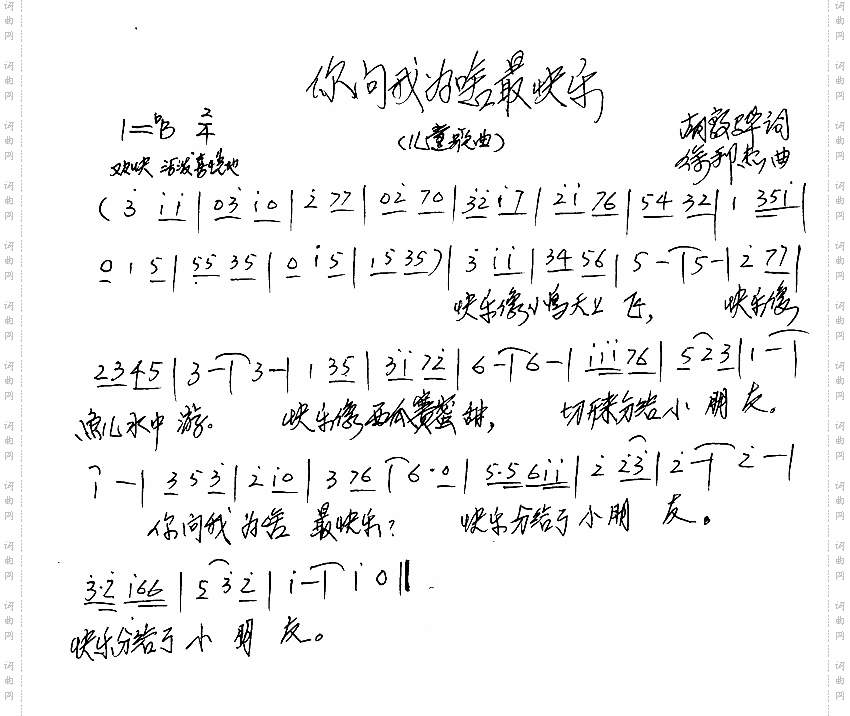 你问我为啥最快乐
1=♭B 2/4
(儿童歌曲)
词
曲
欢快 活泼喜悦地
(3̇ i̇ i̇ | 0 3̇ i̇ 0 | 2̇ 7 7 | 0 2̇ 7 0 | 3̇ 2̇ i̇ 7 | 2̇ i̇ 7 6 | 5 4 3 2 | 1 3 5 i̇ |
0 1 5 | 5 5 3 5 | 0 i̇ 5 | 1 5 3 5) | 3̇ i̇ i̇ | 3 4 5 6 | 5 - | 5 - | 2̇ 7 7 |
快乐像小鸟天上飞, 快乐像
2 3 4 5 | 3 - | 3 - | 1 3 5 | 3̇ i̇ 7 2̇ | 6 - | 6 - | i̇ i̇ i̇ 7 6 | 5 2̇ 3̇ | 1 - |
鱼儿水中游。 快乐像西瓜赛蜜甜, 切开来分给小朋友。
1 - | 3 5 3̇ | 2̇ i̇ 0 | 3 7 6 | 6 · 0 | 5·5 6 i̇ i̇ | 2̇ 2̇ 3̇ | 2̇ - | 2̇ - |
你问我为啥最快乐? 快乐分给了小朋友。
3̇·2̇ i̇ 6 6 | 5 3̇ 2̇ | i̇ - | i̇ 0 ‖
快乐分给了小朋友。
词曲网